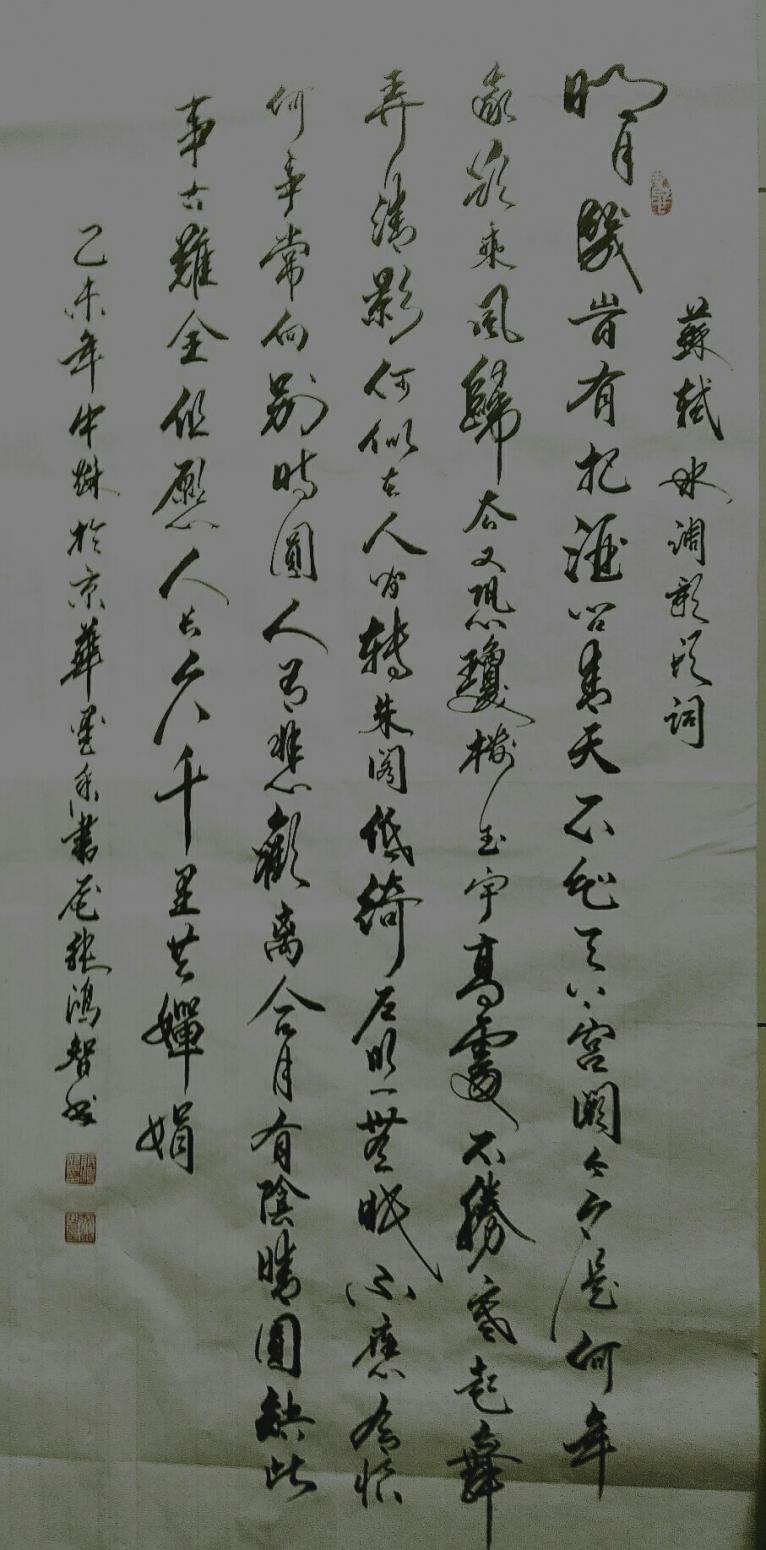 蘇軾水調歌頭詞
明月幾旹有把酒問青天不知天上宮闕今夕是何年
我欲乘風歸去又恐瓊樓玉宇高處不勝寒起舞
弄清影何似在人間轉朱閣低綺戶照無眠不應有恨
何事常向別時圓人有悲歡离合月有陰晴圓缺此
事古難全但願人長久千里共嬋娟
乙未年中秋於京華墨香書苑張鴻智書